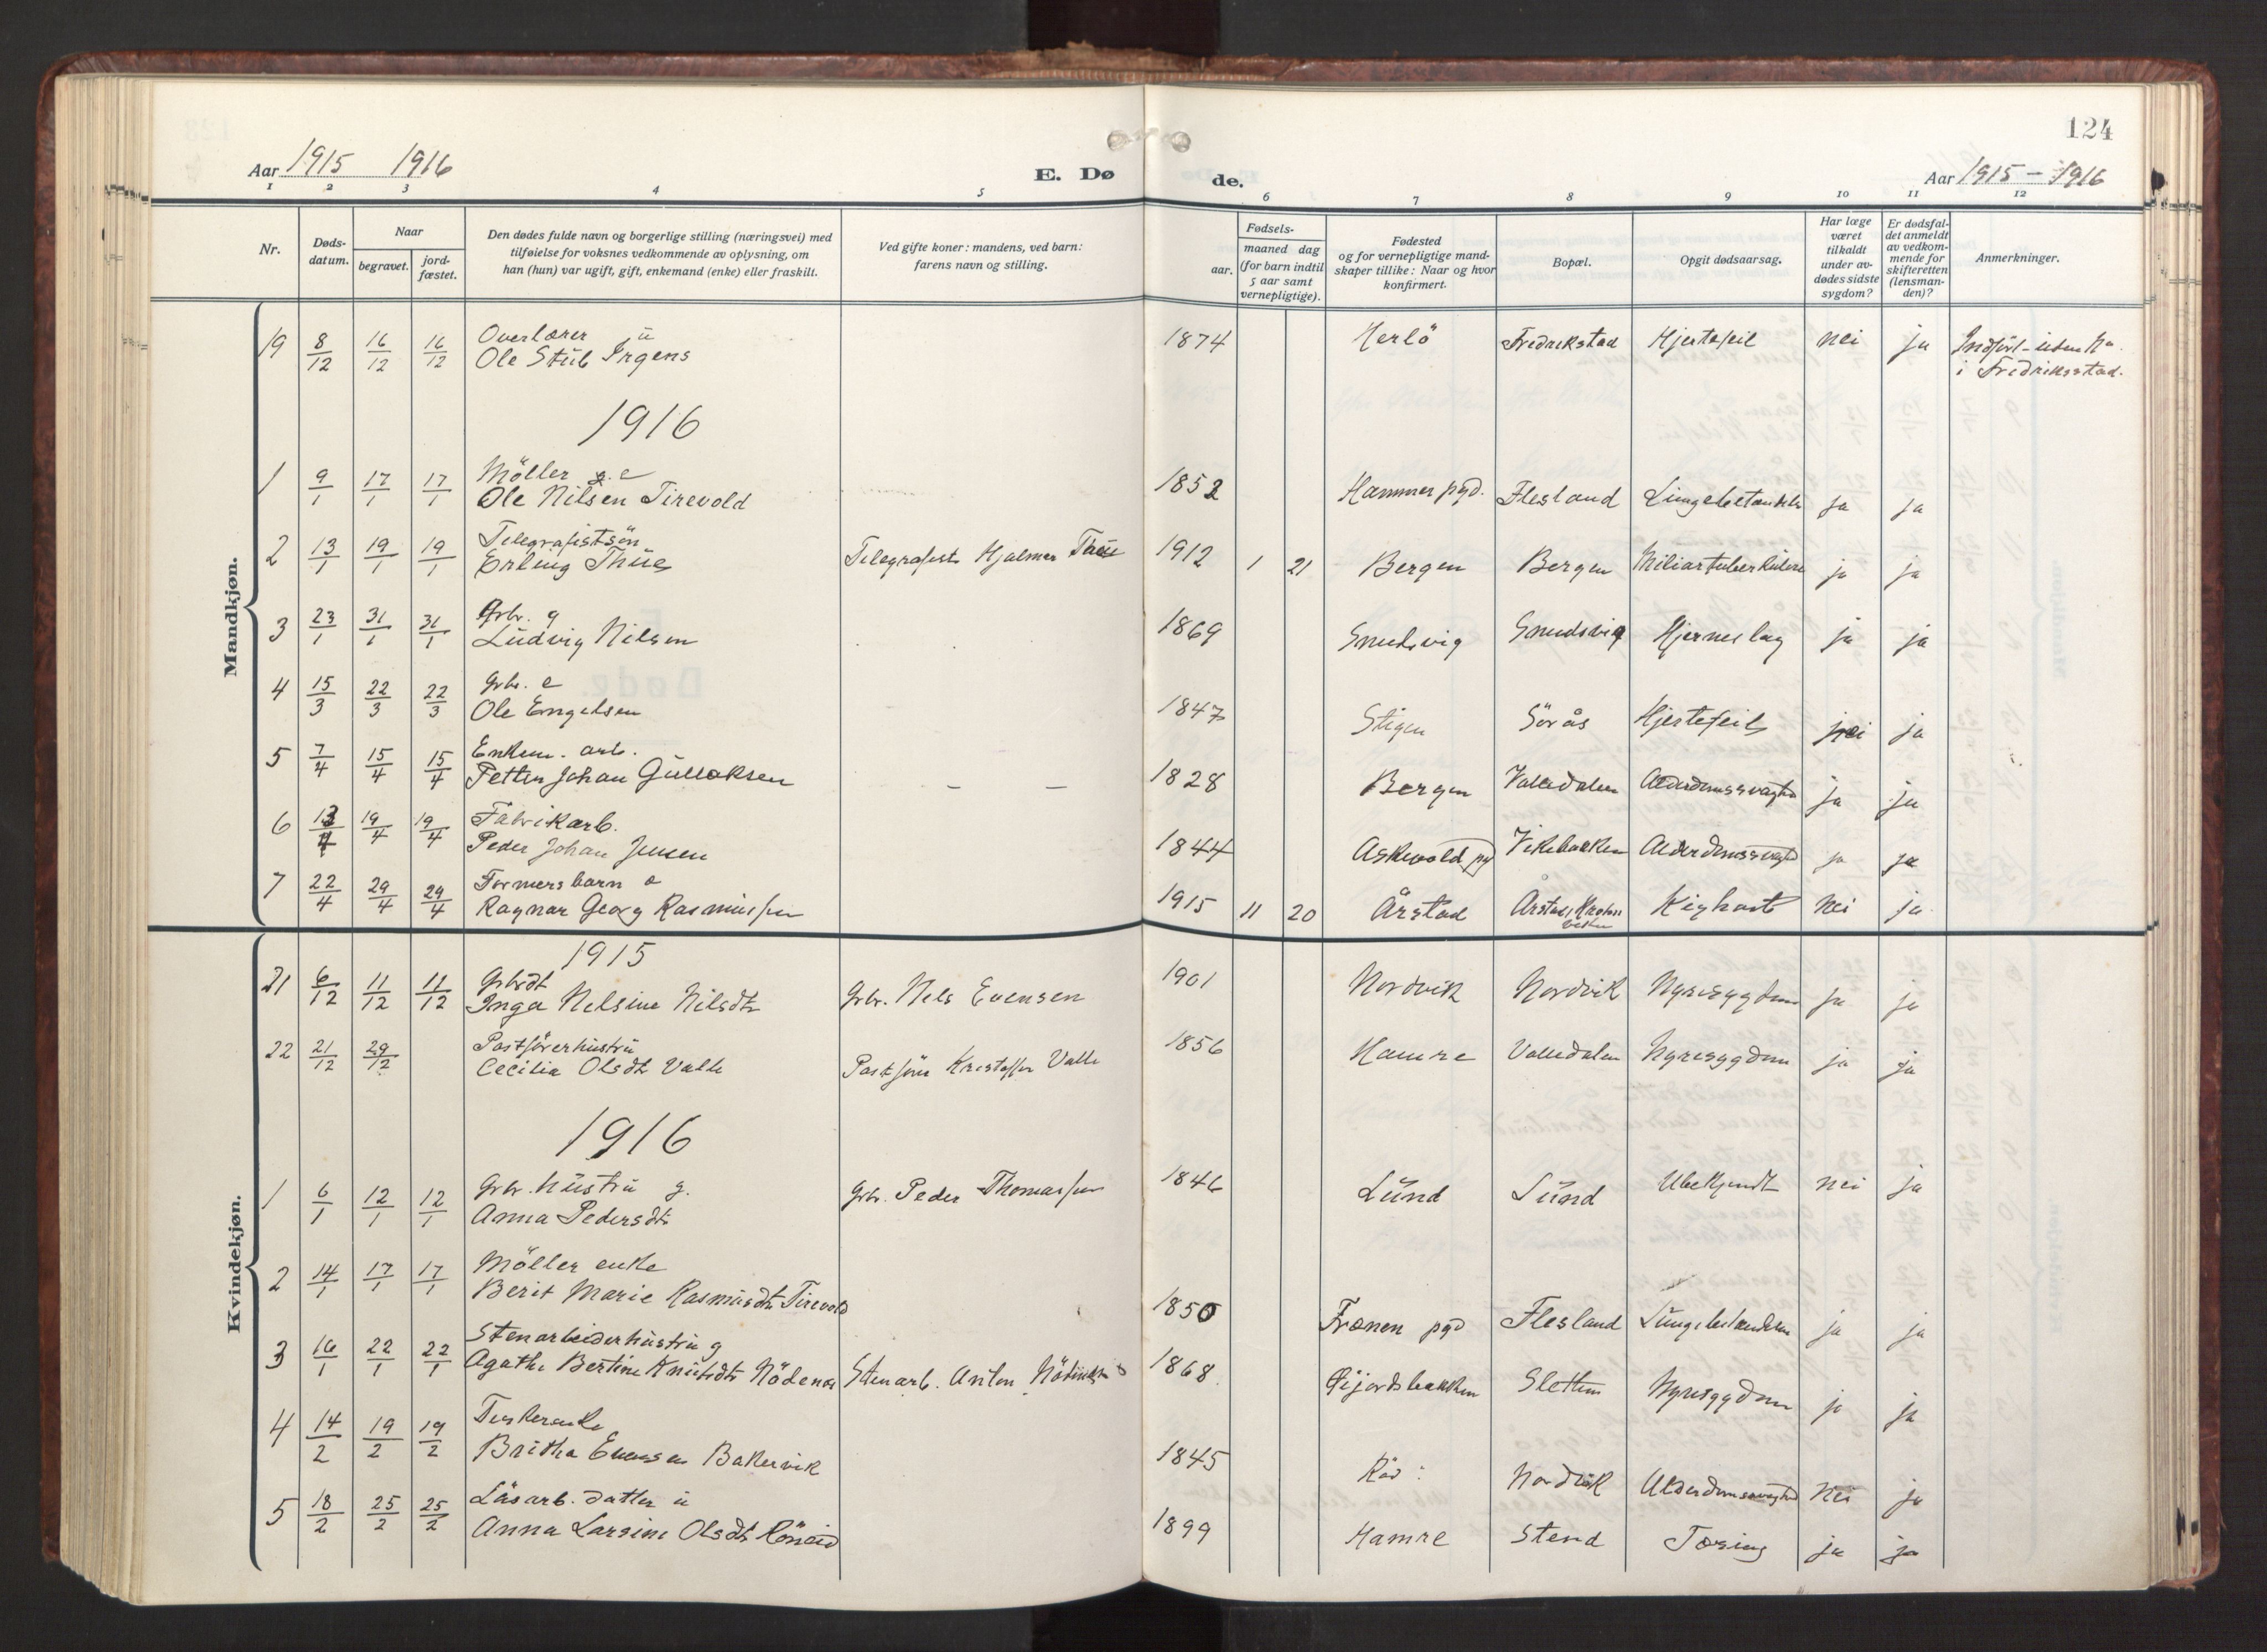 124
Aar 1915 1916
E. Dø
de.
Aar 1915 – 1916
1 2 3 4 5 6 7 8 9 10 11 12
Nr.
Døds-
datum.
Naar
begravet.
jord-
fæstet.
Den dødes fulde navn og borgerlige stilling (næringsvei) med
tilføielse for voksnes vedkommende av oplysning, om
han (hun) var ugift, gift, enkemand (enke) eller fraskilt.
Ved gifte koner: mandens, ved barn:
farens navn og stilling.
Fødsels-
aar.
maaned dag
(for barn indtil
5 aar samt
vernepligtige).
Fødested
og for vernepligtige mand-
skaper tillike: Naar og hvor
konfirmert.
Bopæl.
Opgit dødsaarsag.
Har læge
været
tilkaldt
under av-
dødes sidste
sygdom?
Er dødsfal-
det anmeldt
av vedkom-
mende for
skifteretten
(lensman-
den)?
Anmerkninger.
Mandkjøn.
19 8/12 16/12 16/12 Overlærer ü
Ole Stüb Irgens 1874 Herlö Fredrikstad Hjertefeil nei ja
i Fredriksstad.
1916
1 9/1 17/1 17/1 Möller e
Ole Nilsen Tirevold 1852 Hammer pgd. Flesland ja ja
2 13/1 19/1 19/1 Telegrafistsön
Erling Thüe Telegrafist Hjalmar Thüe 1912 1 21 Bergen Bergen ja ja
3 23/1 31/1 31/1 Grbr. g
Ludvig Nilsen 1869 Smudsvig Smudsvig Hjerneslag ja ja
4 15/3 22/3 22/3 Grbr. e
Ole Engelsen 1847 Stigen Sörås Hjertefeil nei ja
5 7/4 15/4 15/4 Enkem. arb.
Petter Johan Gulloksen – – 1828 Bergen Valledalen Alderdomssvaghed ja ja
6 13/4 19/4 19/4 Fabrikarb.
Peder Johan Jensen 1844 Askevold pgd Alderdomssvaghed ja ja
7 22/4 29/4 29/4 Formersbarn
Ragnar Georg Rasmussen 1915 11 20 Årstad Årstad, Kighoste nei ja
Kvindekjøn.
1915
21 6/12 11/12 11/12 Grbrdt
Inga Nelsine Nilsdt Grbr. Nels Evensen 1901 Nordvik Nordvik Nyresygdom ja ja
22 21/12 29/12 Postförerhustru
Cecilia Olsdt Valle Postförer Kristoffer Valle 1856 Hamre Valledalen Nyresygdom ja ja
1916
1 6/1 12/1 12/1 Grbr. hüstrü g.
Anna Pedersdt Grbr. Peder Thomassen 1846 Lünd Lünd Ubekjendt nei ja
2 14/1 17/1 17/1 Möller enke
Berit Marie Rasmüsdt Tirevold 1850 Frænen pgd Flesland Lüngebetændelse ja ja
3 16/1 22/1 22/1 Stenarbeiderhüstrü g
Agathe Bertine Knütsdt Nödenes Stenarb. Anton 1868 Slettun Nyresygdom ja ja
4 14/2 19/2 19/2
Britha Evensen Bakervik 1845 Nordvik Alderdomssvaghed nei ja
5 18/2 25/2 25/2 Läsarb. datter ü
Anna Larsine Olsdt 1899 Hamre Stend Tæring ja ja